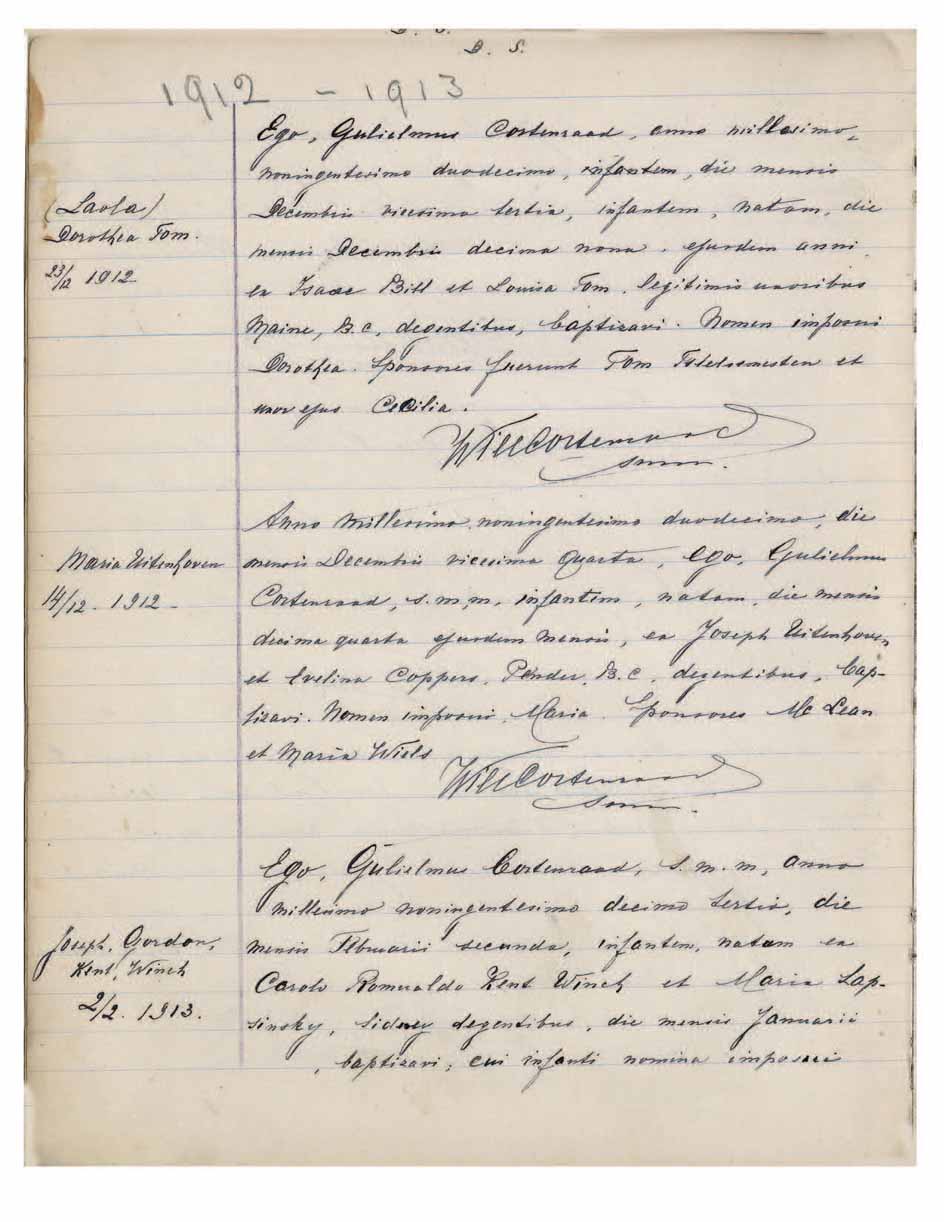 D. S.
D. S.
1912 - 1913
(Laola)
Dorothea Tom.
23/12 1912
Ego, Gulielmus Cortenraad, anno millesimo,
noningentesimo duodecimo, infantem, die mensis
Decembris vicesima tertia, infantem, natam, die
mensis Decembris decima nona. ejusdem anni
ex Isaac Bill et Louisa Tom. legitimis uxoribus
Maine, B.C. degentibus, baptizavi. Nomen imposui
Dorothea. Sponsores fuerunt Tom et
uxor ejus Cecilia.
Will Cortenraad
smm.
Maria Uitenhoven
14/12. 1912 -
Anno millesimo, noningentesimo duodecimo, die
mensis Decembris vicesima quarta, ego, Gulielmus
Cortenraad, s.m.m. infantem, natam, die mensis
decima quarta ejusdem mensis, ex Joseph Uitenhoven
et Evelina Coppers, Pender, B.C. degentibus, bap-
tizavi. Nomen imposui, Maria. Sponsores Mc Lean
et Maria Wiels
Will Cortenraad
smm.
Joseph, Gordon,
Kent, Winch
2/2. 1913.
Ego, Gulielmus Cortenraad, s.m.m, anno
millesimo noningentesimo decimo tertio, die
mensis Februarii secunda, infantem, natam ex
Carolo Romualdo Kent Winch et Maria Lap-
sinsky, Sidney degentibus, die mensis Januarii
, baptizavi, cui infanti nomina imposui